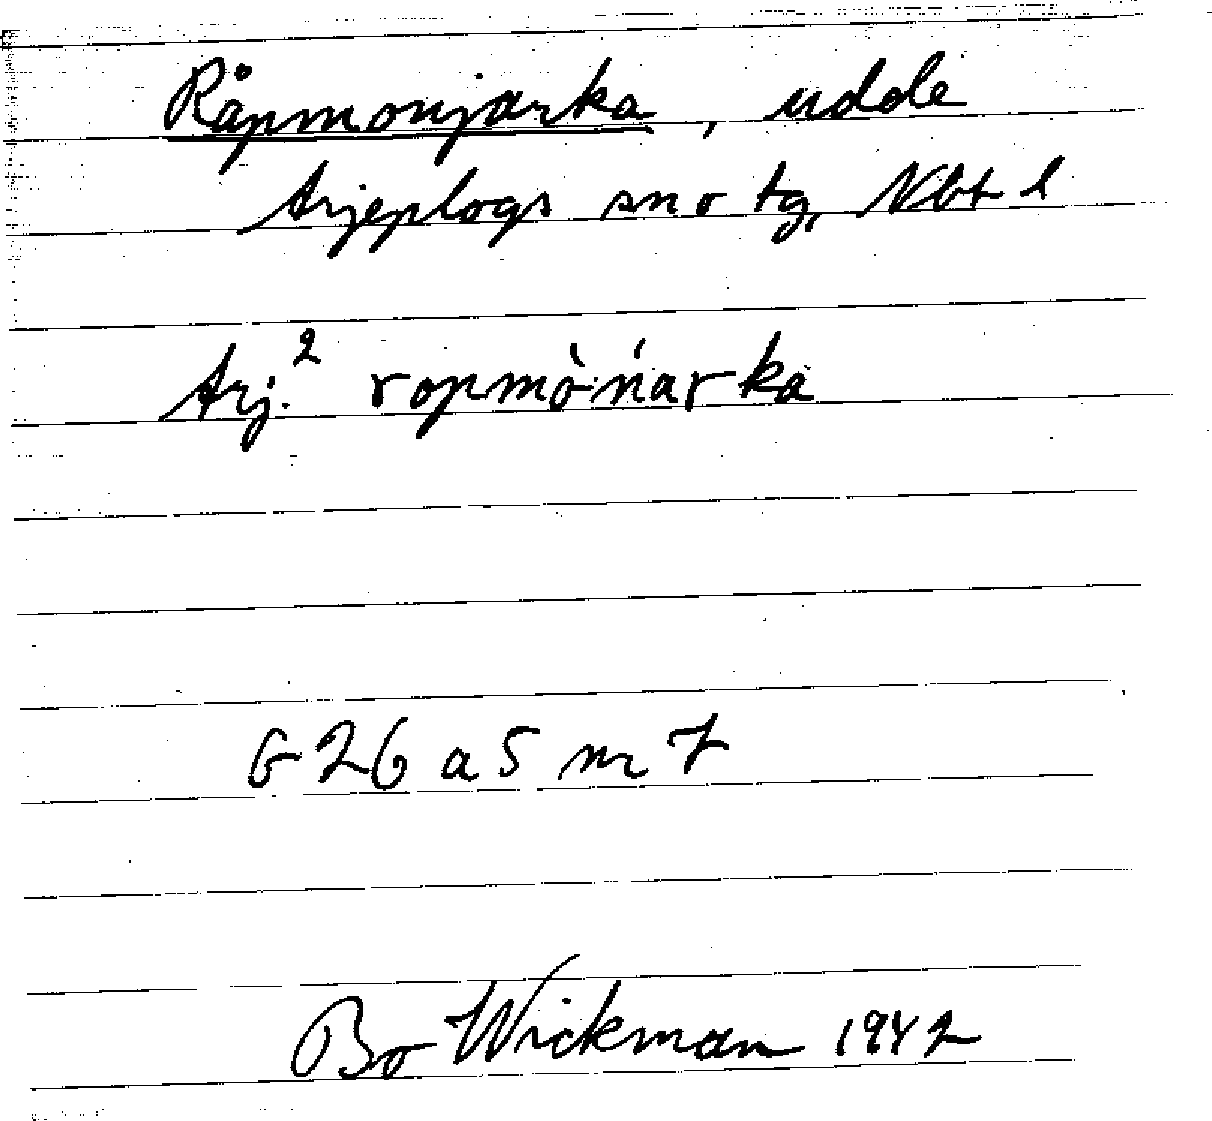 Råpmonjarka, udde
Arjeplogs sn o tg, Nbt l
Arj.² ropmò·ńarka
G 26 a 5 nr 7
Bo Wickman 1942